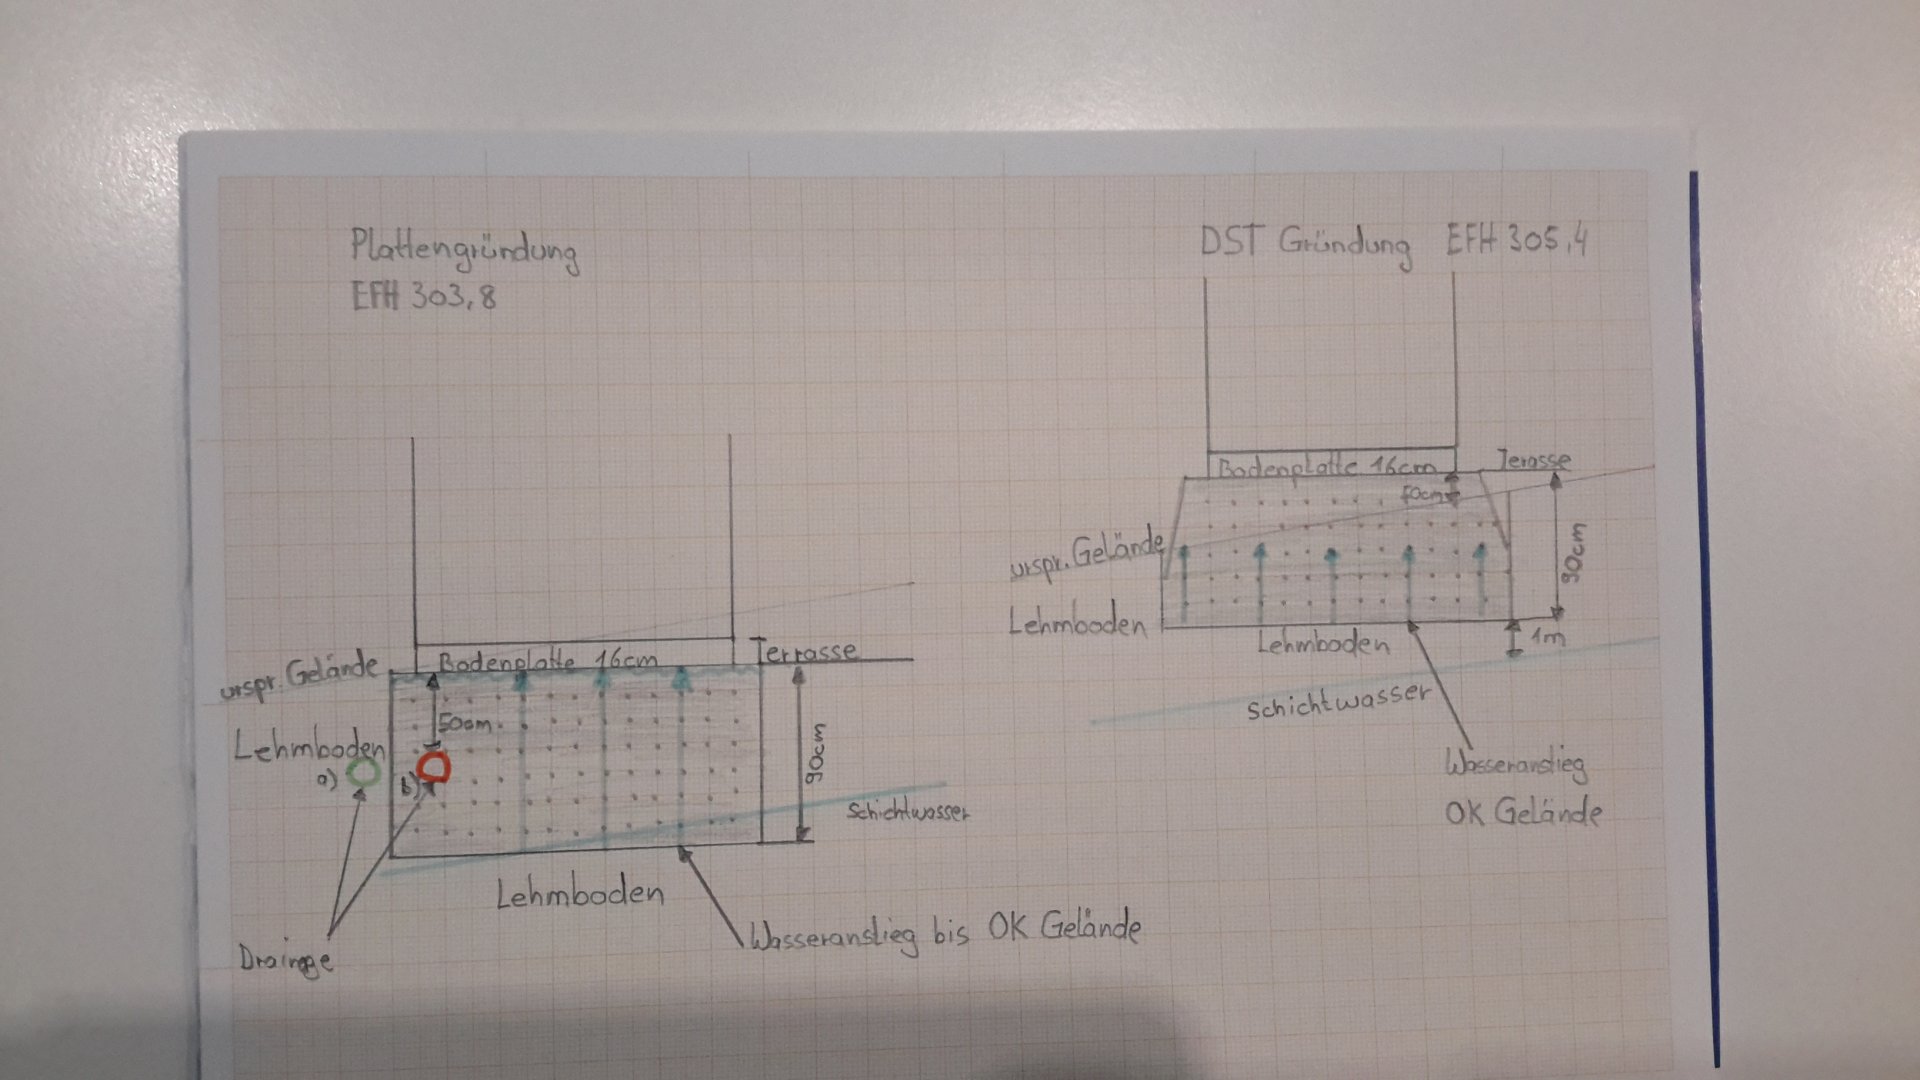 Plattengründung
EFH 303,8
DST Gründung EFH 305,4
Bodenplatte 16cm
Terrasse
urspr. Gelände
50cm
90cm
Lehmboden
a)
b)
Schichtwasser
Lehmboden
Wasseranstieg bis OK Gelände
Drainage
Bodenplatte 16cm
Terasse
50cm
urspr. Gelände
90cm
Lehmboden
Lehmboden
1m
Schichtwasser
Wasseranstieg
OK Gelände